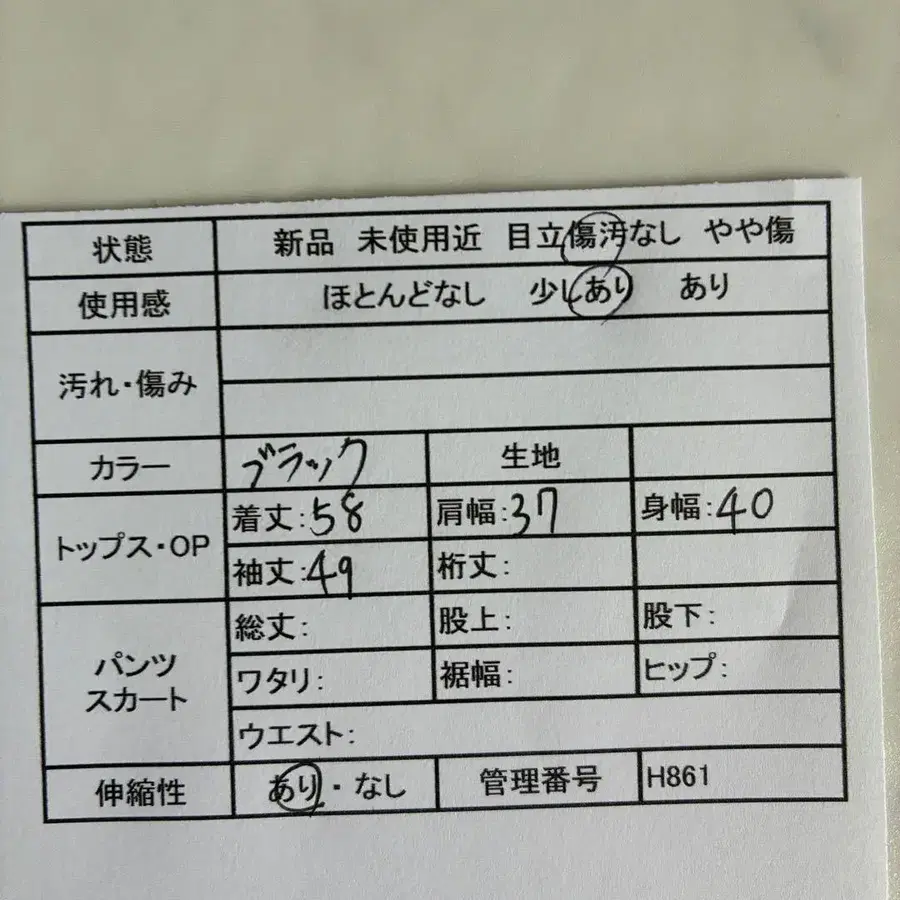 状態 新品 未使用近 目立傷汚なし やや傷
使用感 ほとんどなし 少しあり あり
汚れ・傷み
カラー ブラック 生地
トップス・OP
着丈:58 肩幅:37 身幅:40
袖丈:49 裄丈:
パンツ
スカート
総丈: 股上: 股下:
ワタリ: 裾幅: ヒップ:
ウエスト:
伸縮性 あり・なし 管理番号 H861